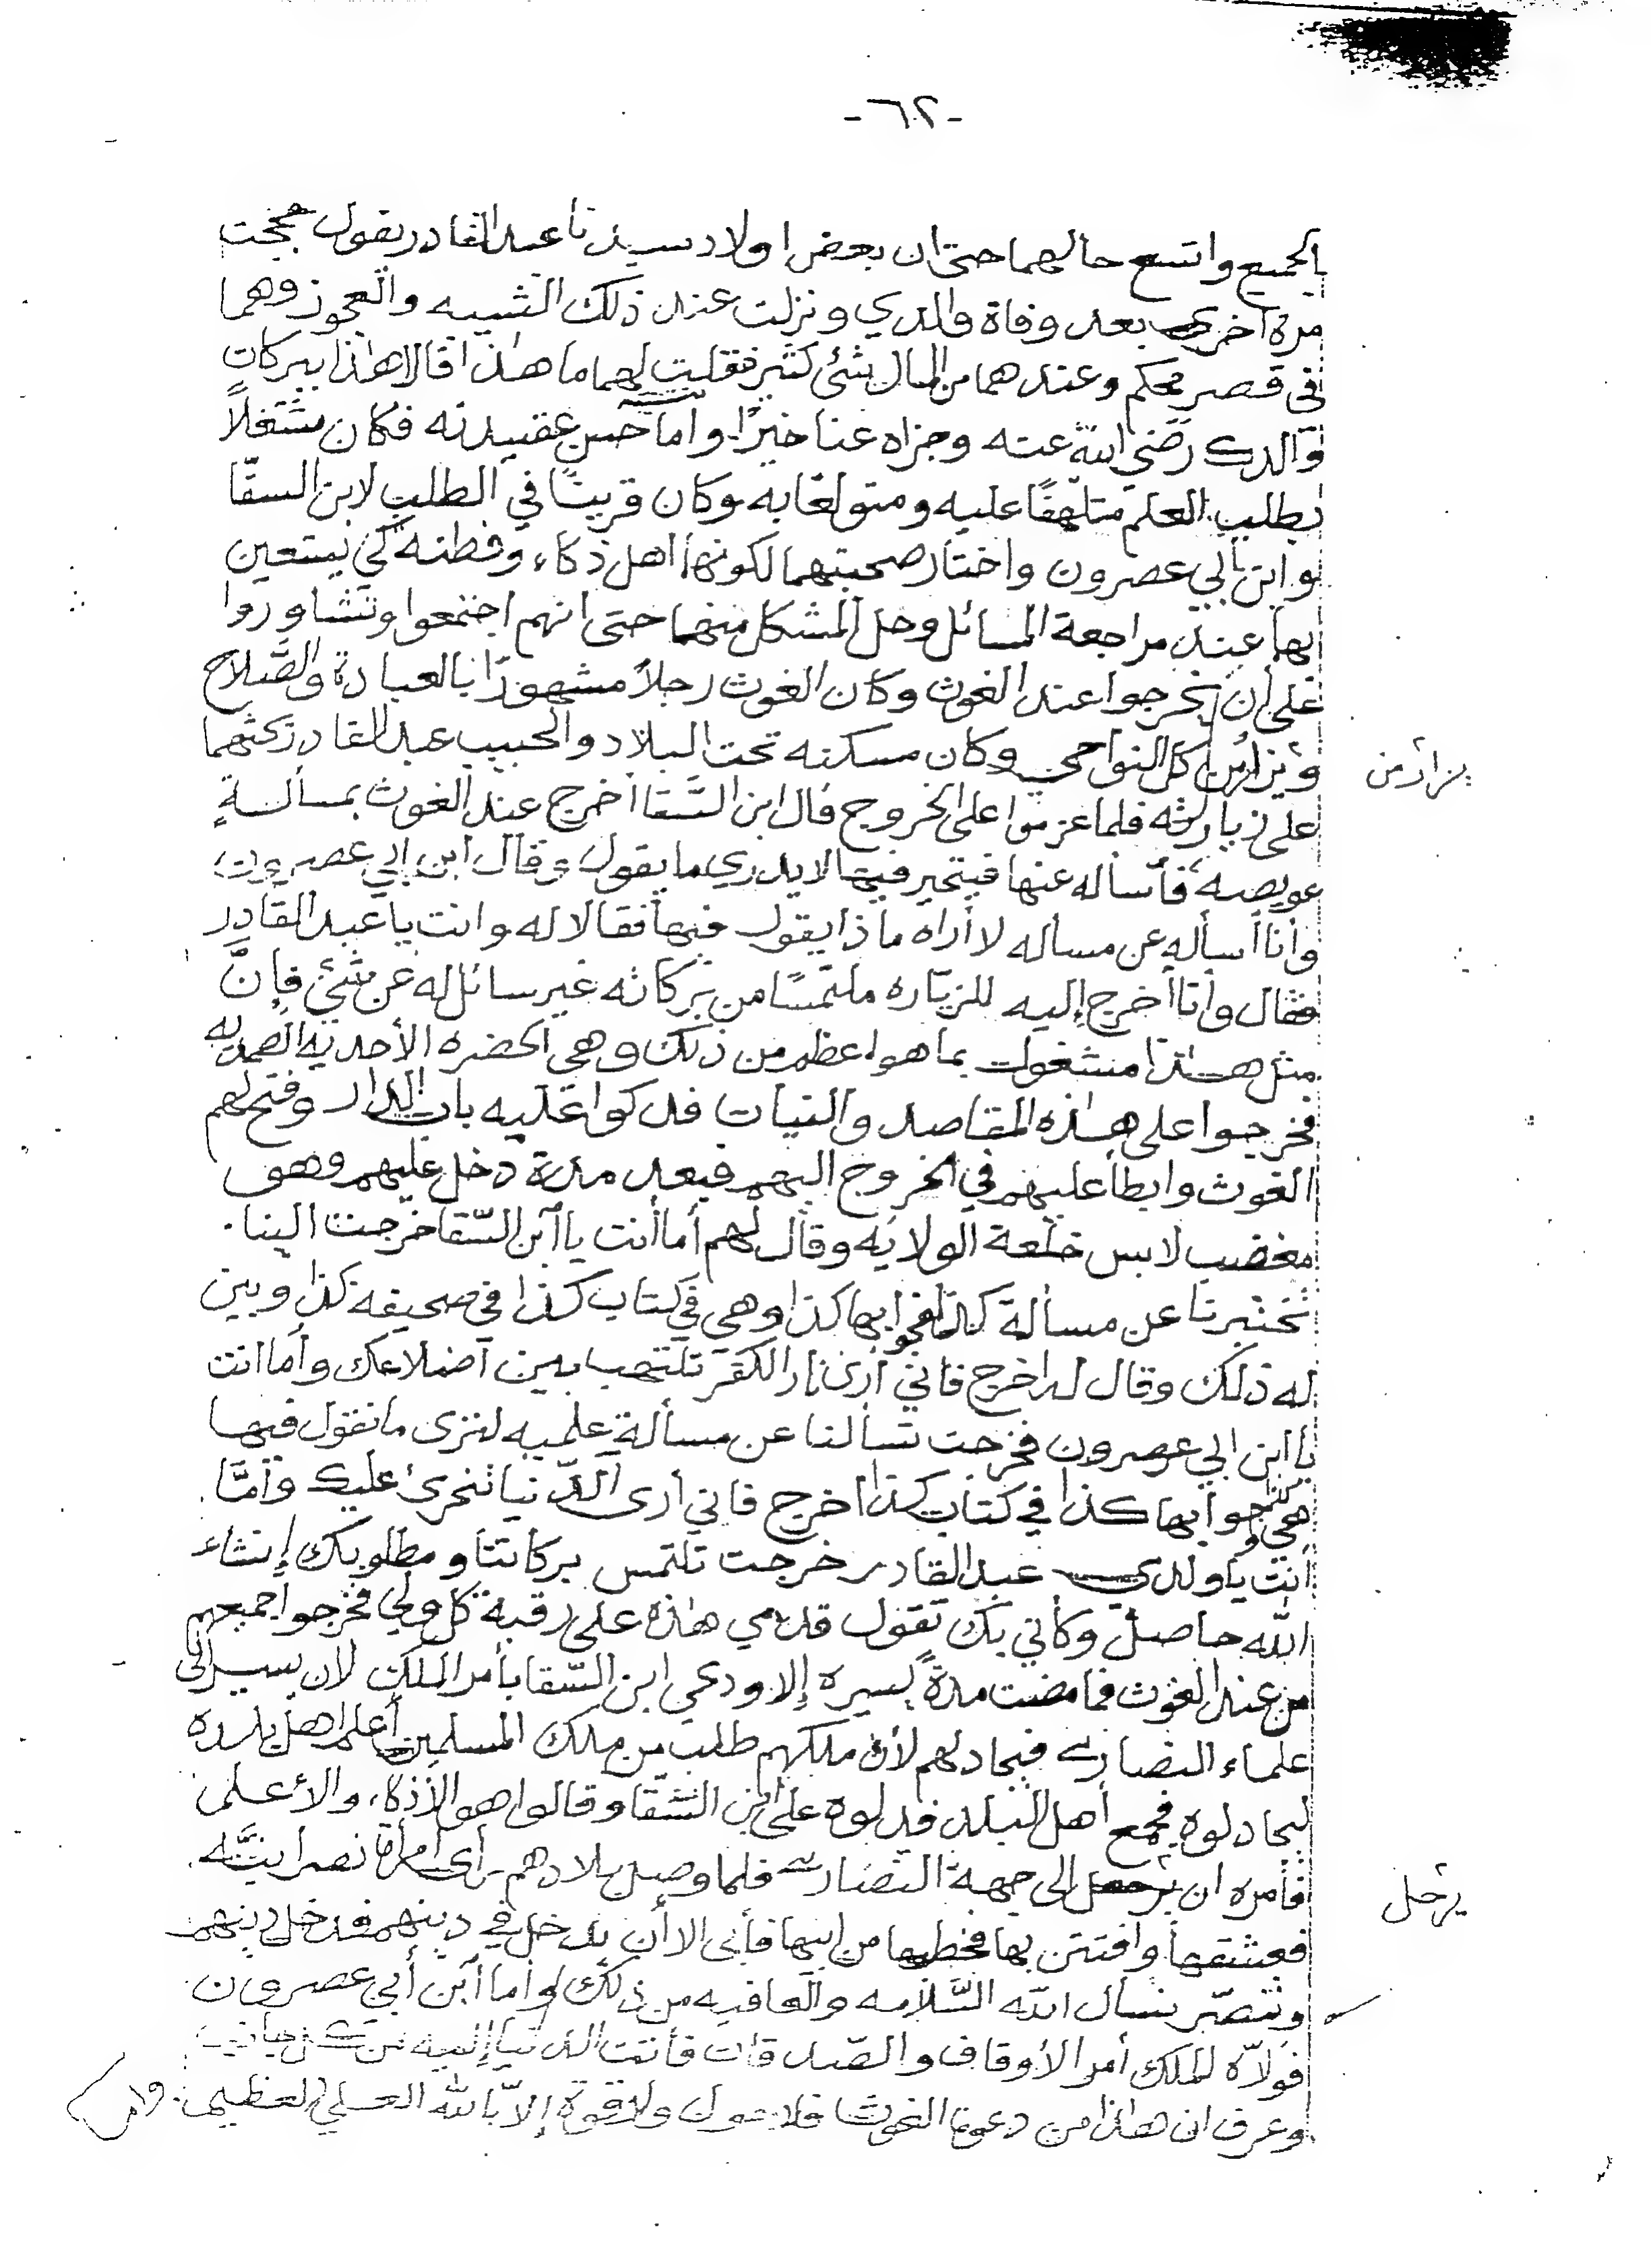 -٦٢-
بالجميع واتسع حالهما حتى ان بعض اولاد سيدنا عبد القادر يقول حججت
مرة أخرى بعد وفاة والدي ونزلت عند ذلك الشيبه والعجوز وهما
في قصر محكم وعندهما من المال شئ كثير فقلت لهما ما هٰذا قالا هٰذا ببركات
والدك رضي الله عنه وجزاه عنا خيرًا. واما حسن عقيدته فكان مشتغلاً
بطلب العلم متلهفًا عليه ومتولعًا به وكان قرينًا في الطلب لابن السقّا
وابن أبي عصرون واختار صحبتهما لكونهما اهل ذكاء وفطنه كي يستعين
بها عند مراجعة المسائل وحل المشكل منها حتى انهم اجتمعوا وتشاوروا
على أن يخرجوا عند الغوث وكان الغوث رجلاً مشهورًا بالعبادة والصَّلاح
ويزار من كل النواحي وكان مسكنه تحت البلاد والحبيب عبد القادر يحثهما
يزار من
على زيارته فلما عزموا على الخروج قال ابن السَّقا أخرج عند الغوث بمسألةٍ
عويصه فأسأله عنها فيتحير فيها لا يدري ما يقول وقال ابن ابي عصرون
وأنا أسأله عن مسأله لا أراه ماذا يقول فيها فقالا له وانت يا عبد القادر
فقال وأنا أخرج إليه للزياره ملتمسًا من بركاته غير سائل له عن شئ فإنَّ
مثل هٰذا مشغول بما هو اعظم من ذلك وهي الحضره الأحديه الصمديه
فخرجوا على هٰذه المقاصد والنيات فدكوا عليه باب الدار وفتح لهم
الغوث وابطأ عليهم في الخروج اليهم فبعد مدة دخل عليهم وهو
مغضب لابس خلعة الولايه وقال لهم أما أنت يا آبن السّقا خرجت الينا
تختبرنا عن مسألة كذا فجوابها كذا وهي في كتاب كذا في صحيفه كذا وبين
له ذلك وقال له اخرج فاني أرى نار الكفر تلتهب بين أضلاعك وأما انت
يا ابن ابي عصرون فخرجت تسألنا عن مسألة علميه لترى ما نقول فيها
هي كذا وجوابها كذا في كتاب كذا اخرج فاني أرى الدّنيا تنخرئ عليك وأمَّا
انت يا ولدي عبد القادر خرجت تلتمس بركاتنا ومطلوبك إنشاء
الله حاصل وكأني بك تقول قدمي هٰذه على رقبة كل ولي فخرجوا جميعهم
من عند الغوث فما مضت مدةً يسيره إلا ودعي ابن السّقا بأمر الملك لان يسير إلى
علماء النصارى فيجادلهم لأن ملكهم طلب من ملك المسلمين أعلم اهل بلده
ليجادلوه فجمع أهل البلد فدلوه على ابن السّقا وقالوا هو الأذكاء والأعلى
فأمره ان يرحل إلى جهة النصارى فلما وصل بلادهم رأى امرأة نصرانيَّه
يرحل
فعشقها وافتتن بها فخطبها من ابيها فأبى الا أن يدخل في دينهم فدخل دينهم
وتنصّر نسأل الله السَّلامه والعافيه من ذلك واما آبن أبي عصرون
فولاّه الملك أمر الأوقاف والصّدقات فأتت الدنيا إليه من كل جانب
وعرف ان هٰذا من دعوة الغوث فلا حول ولا قوة إلا بالله العلي العظيم.